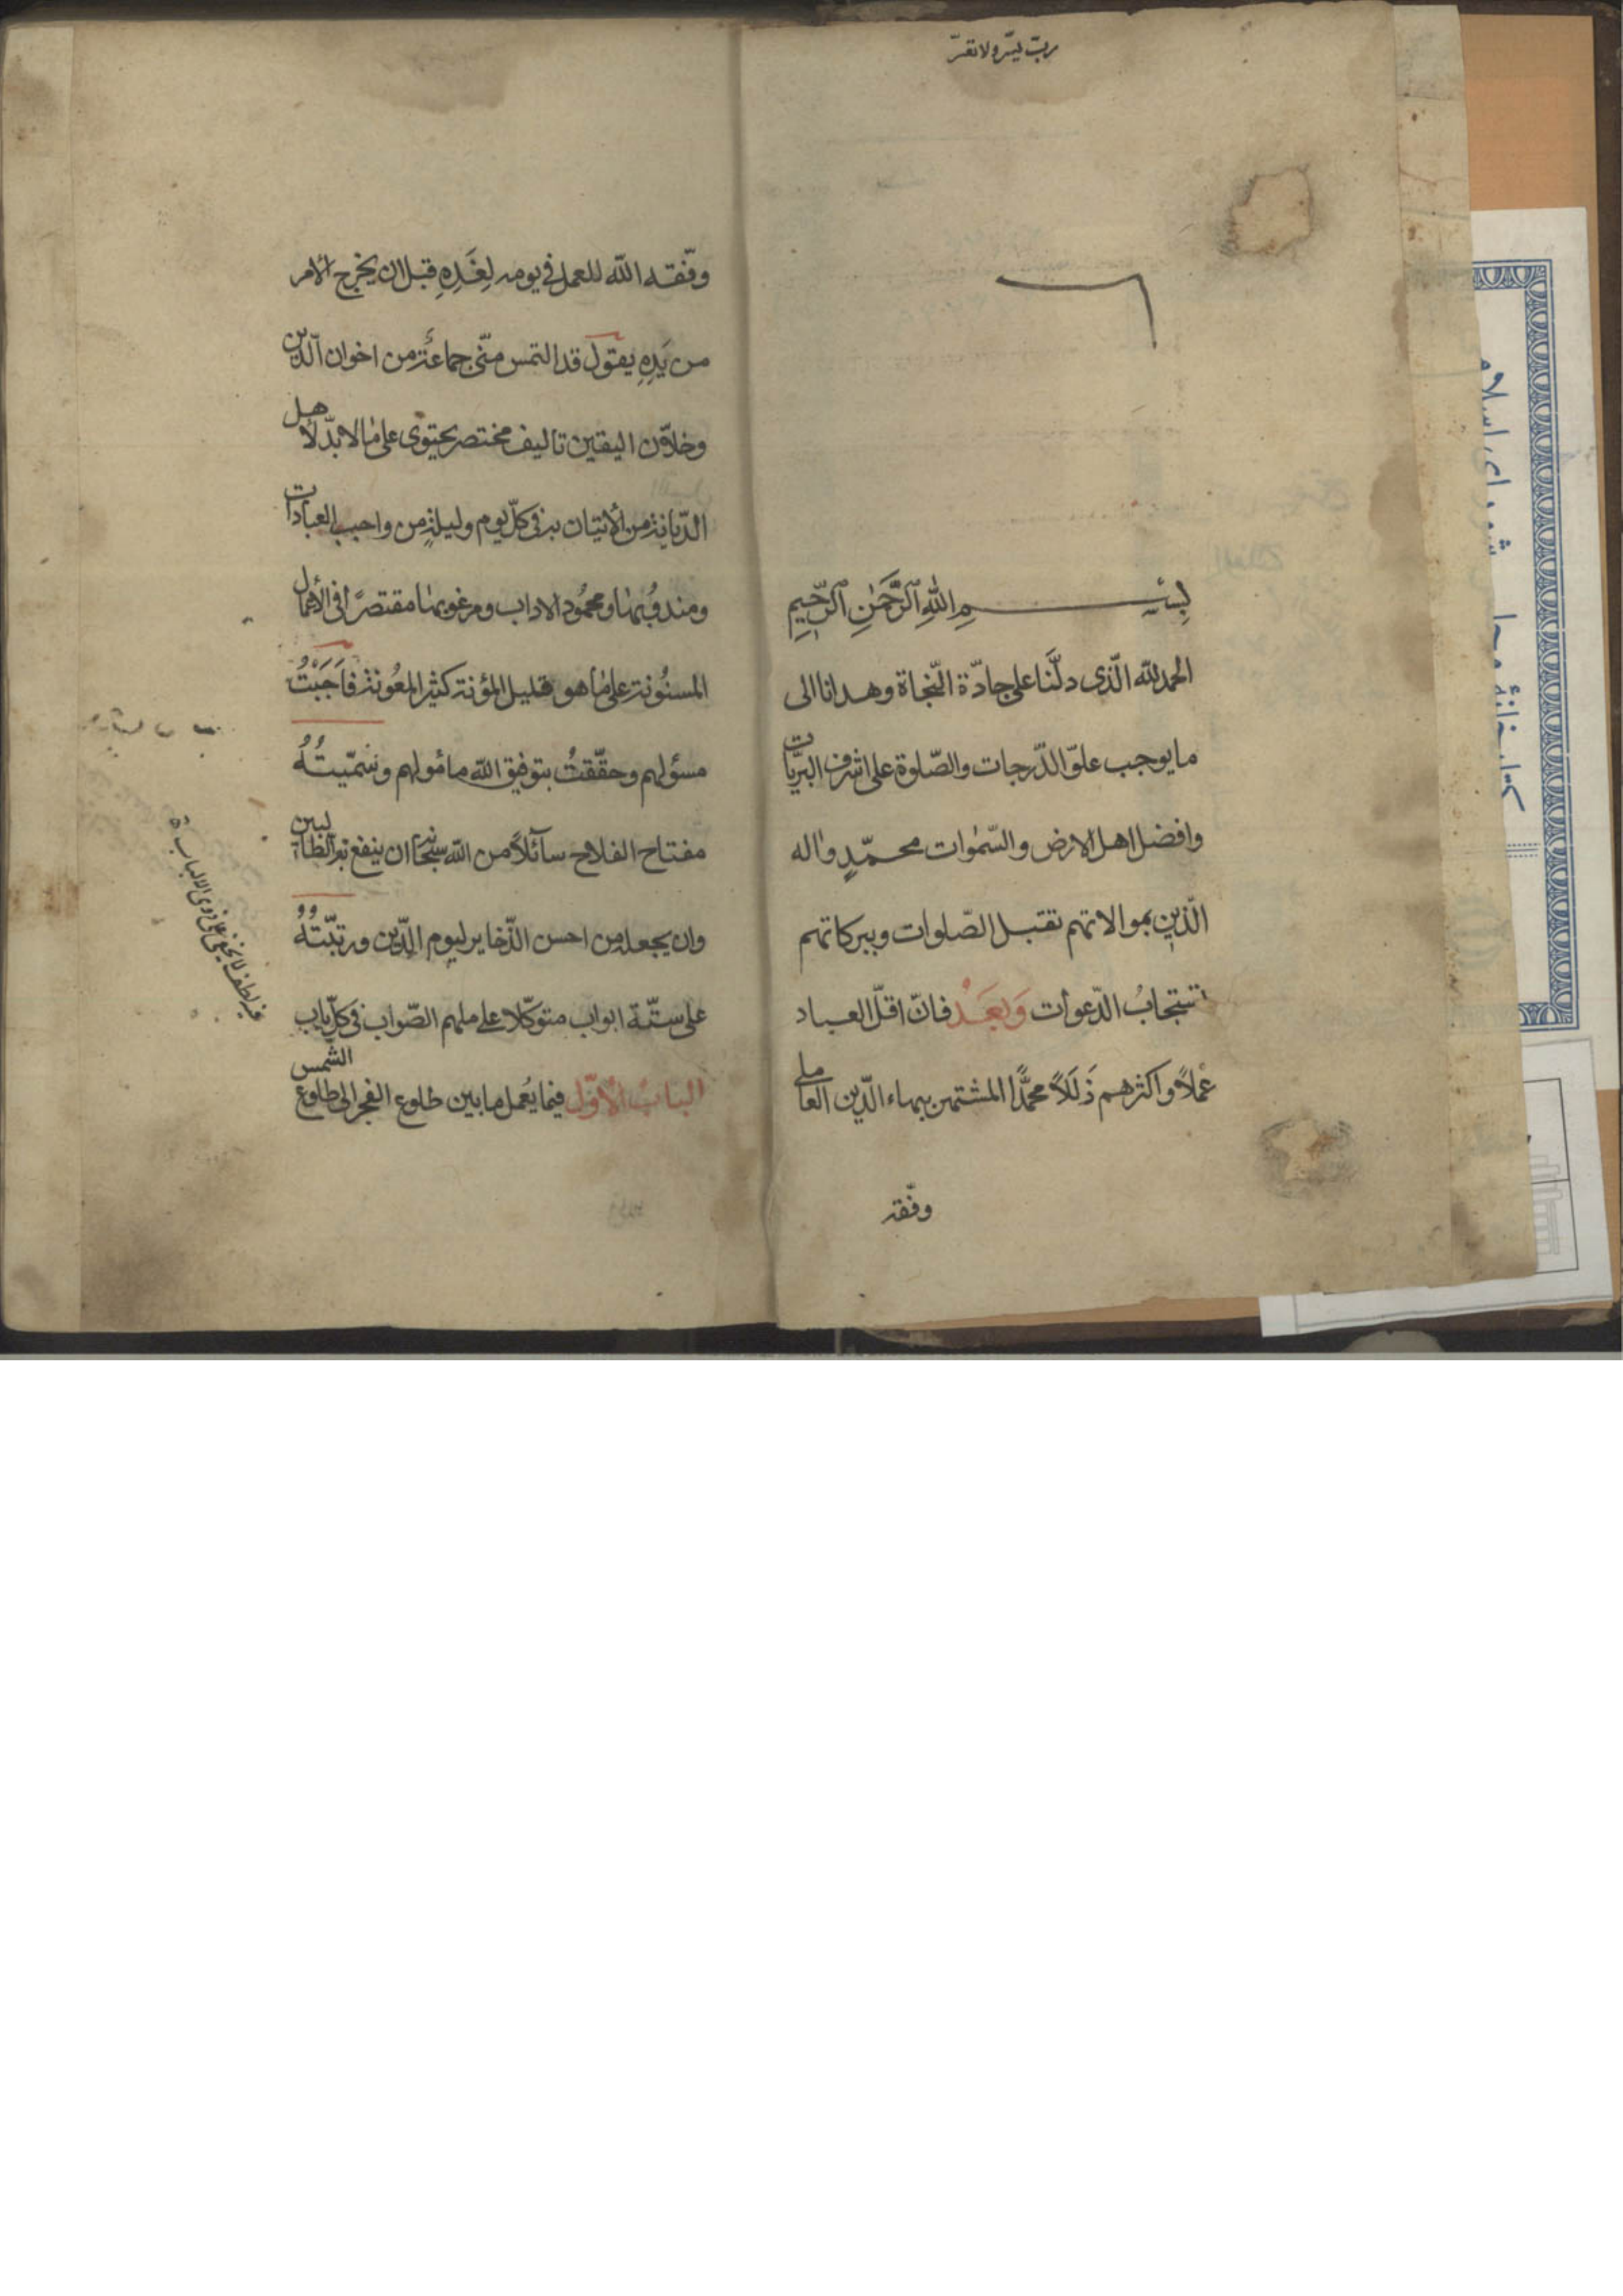 ربّ يسّر ولا تعسّر
بِسْمِ اللهِ الرَّحْمٰنِ الرَّحِيمِ
الحمد لله الّذى دلَّنا على جادّة النّجاة وهدانا الى
ما يوجب علوّ الدّرجات والصّلوة على اشرف البريّات
وافضل اهل الارض والسّمٰوات محمّدٍ واله
الّذين بموالاتهم تقبل الصّلوات وببركاتهم
تستجابُ الدّعوات وَبَعْد فانّ اقلّ العباد
عملاً واكثرهم زَلَلاً محمَّدًا المشتهر ببهاء الدّين العاملى
وفّقه
وفّقه الله للعمل فى يومه لِغَدِهِ قبل ان يخرج الامر
من يَدِهِ يقول قد التمس منّى جماعة من اخوان الدّين
وخلّان اليقين تاليف مختصر يحتوى على ما لا بدّ لاهل
الدّيانة من الاتيان به فى كلّ يوم وليلةٍ من واجب العبادات
ومندوبها ومحمُود الاداب ومرغوبها مقتصرًا فى الاعمال
المسنُونة على ما هو قليل المؤنة كثير المعُونة فاَجَبْتُ
مسؤلهم وحقّقتُ بتوفيق الله مأمولهم وسَمّيتُهُ
مفتاح الفلاح سآئلاً من الله سبحانه ان ينفع به الطالبين
وان يجعله من احسن الذّخاير ليوم الدّين ورتّبتُهُ
على ستّة ابواب متوكّلا على ملهم الصّواب فى كلّ باب
البابُ الاوّل فيما يُعمل ما بين طلوع الفجر الى طلوع الشمس
فيه لطف لا يخفى على ذوى الالباب
كتابخانهٔ مجلس شوراى اسلامى